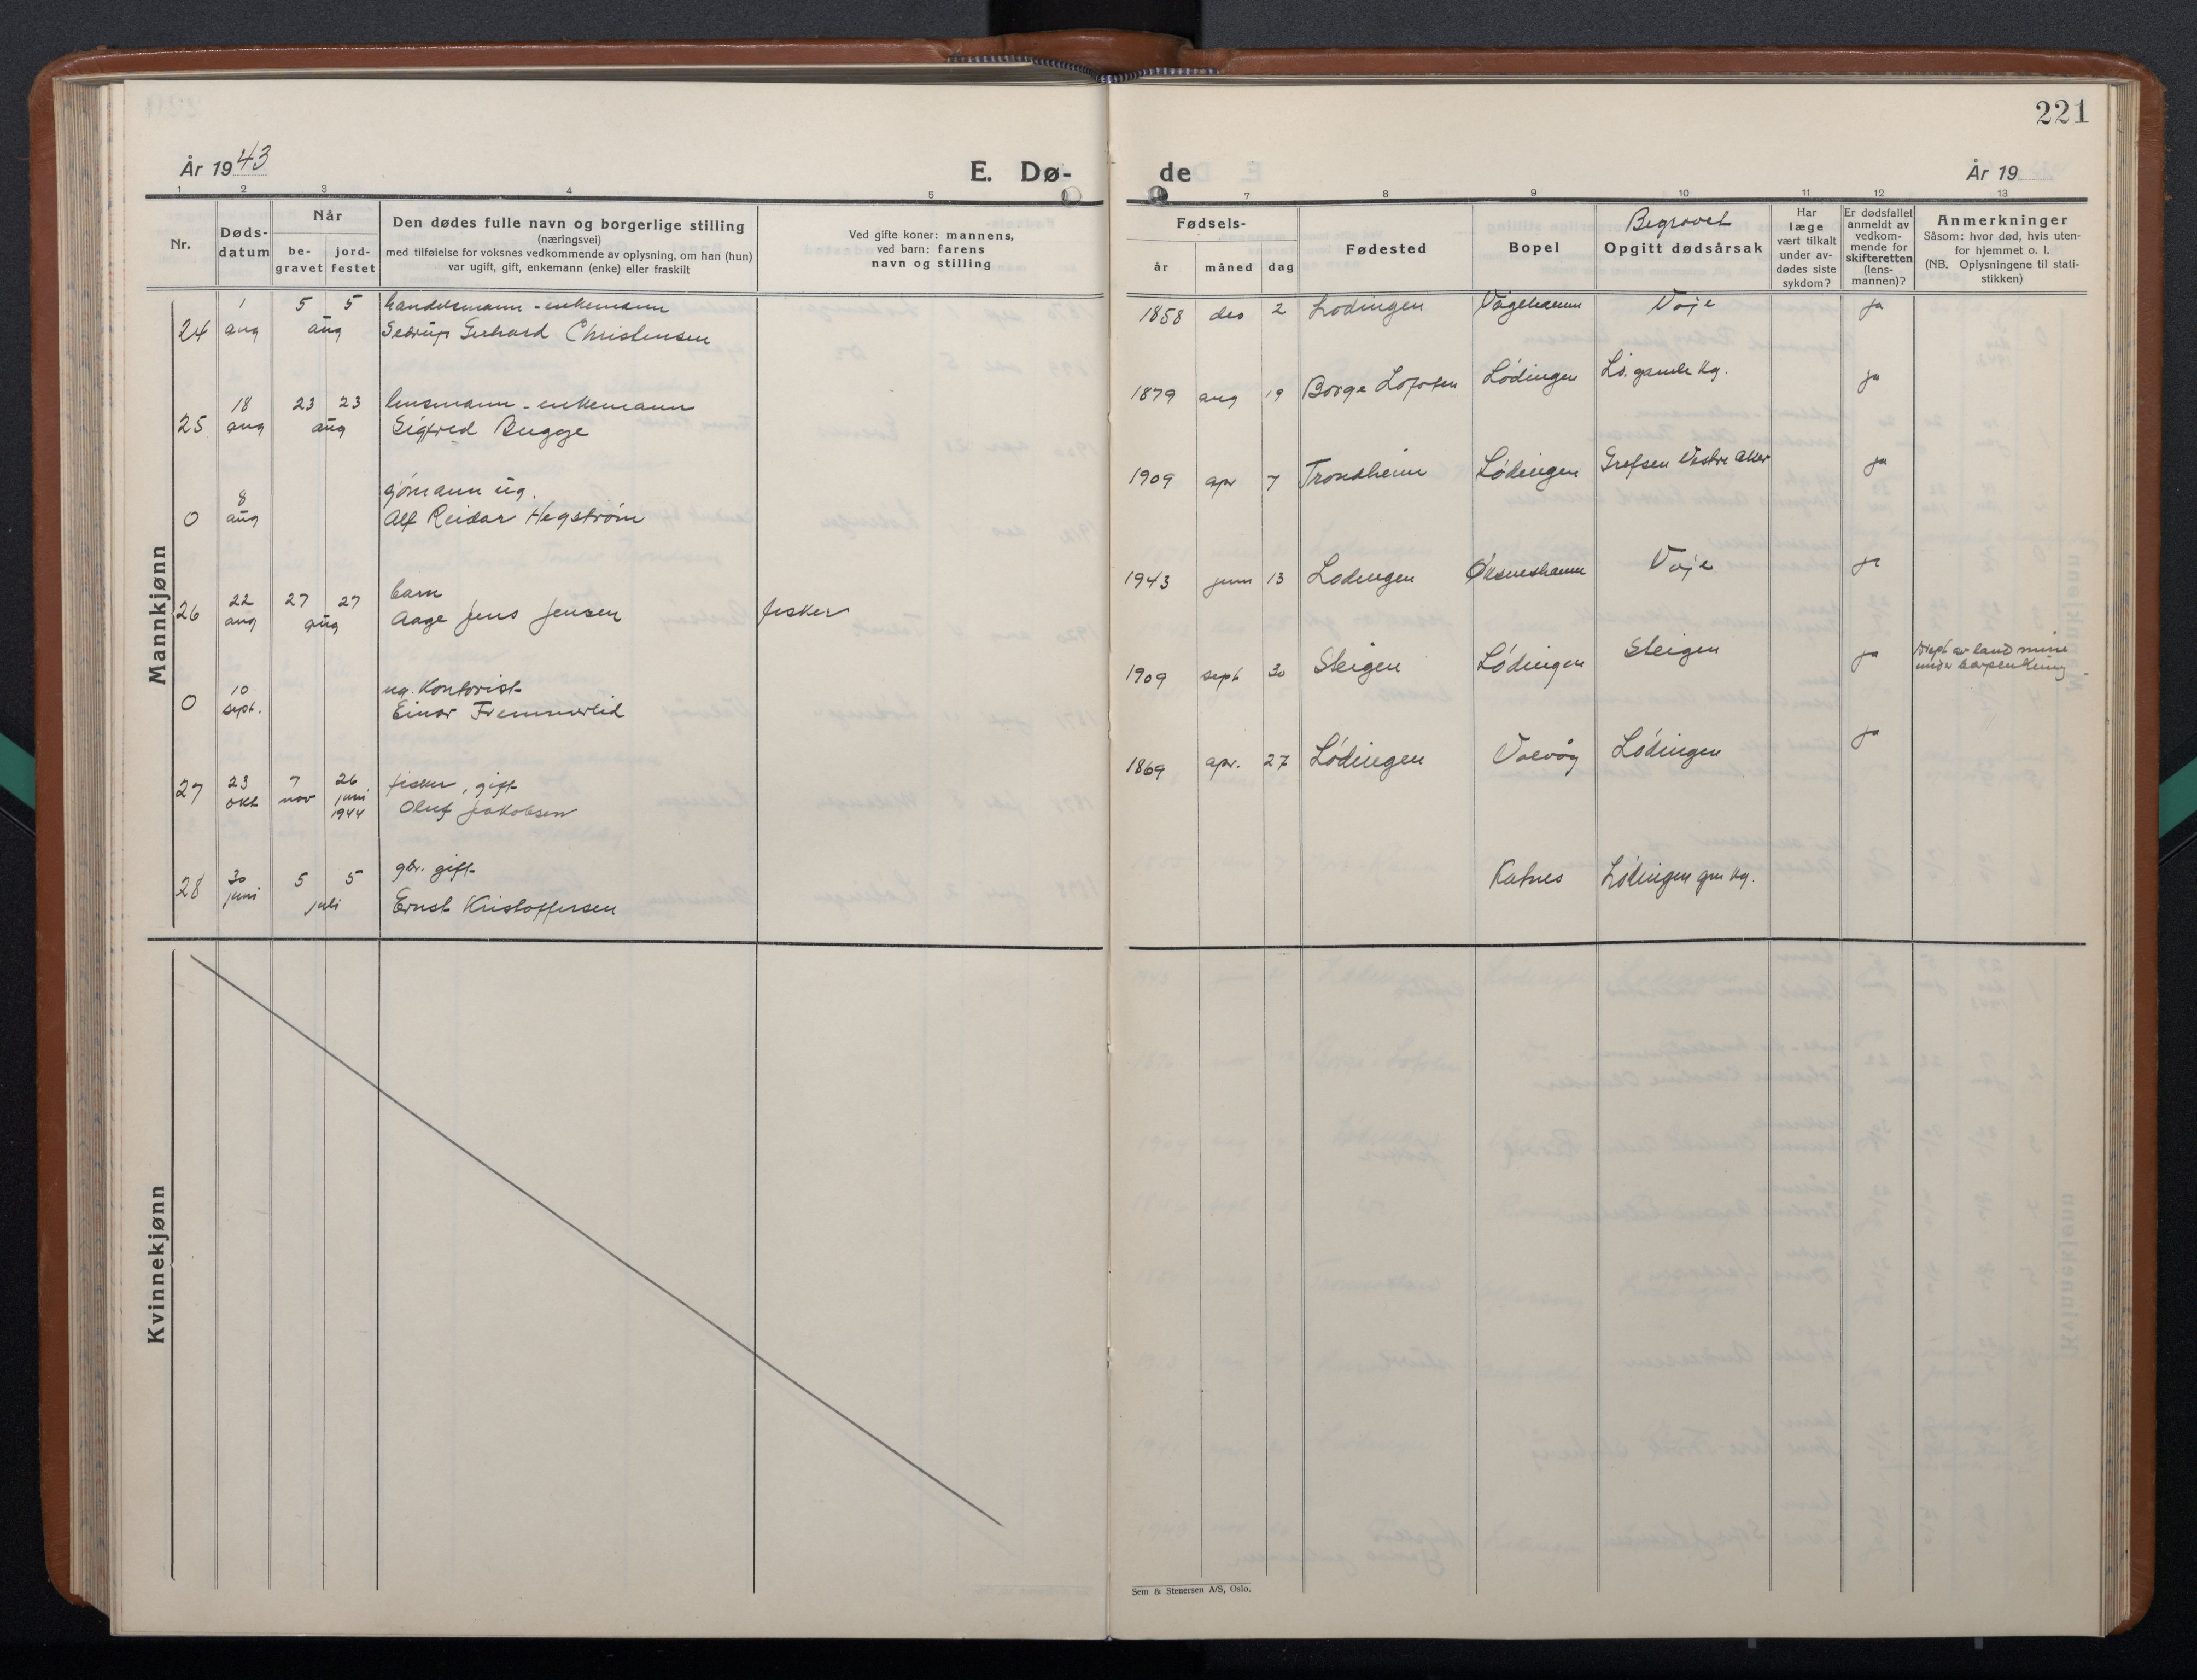 221
År 1943
E. Dø-
de
År 19
1 2 3 4 5 7 8 9 10 11 12 13
Nr.
Døds-
datum
Når
be-
gravet
jord-
festet
Den dødes fulle navn og borgerlige stilling
(næringsvei)
med tilføielse for voksnes vedkommende av oplysning, om han (hun)
var ugift, gift, enkemann (enke) eller fraskilt
Ved gifte koner: mannens,
ved barn: farens
navn og stilling
Fødsels-
år måned dag
Fødested
Bopel
Begravet
Opgitt dødsårsak
Har
læge
vært tilkalt
under av-
dødes siste
sykdom?
Er dødsfallet
anmeldt av
vedkom-
mende for
skifteretten
(lens-
mannen)?
Anmerkninger
Såsom: hvor død, hvis uten-
for hjemmet o. l.
(NB. Oplysningene til stati-
stikken)
Mannkjønn
1 5 5 handelsmann - enkemann
24 aug aug Gerhard Christensen
1858 des 2 Lødingen Vågehamn Voje ja
18 23 23 lensmann - enkemann
25 aug aug Sigfred Bugge
1879 aug 19 Borge Lofoten Lødingen Lø. gamle kg. ja
8 sjømann ug.
0 aug Alf Reidar Hegstrøm
1909 apr 7 Trondheim Lødingen Grefsen Vestre Aker ja
22 27 27 barn
26 aug aug Aage Jens Jensen fisker
1943 juni 13 Lødingen Øksneshamn Voje ja
10 ug. Kontorist
0 sept. Einar Fremmerlid
1909 sept 30 Steigen Lødingen Steigen ja Drept av land mine
under
23 7 26 fisker, gift
27 okt nov juni Oluf Jakobsen
1944
1869 apr. 27 Lødingen Valvåg Lødingen ja
30 5 5 gbr. gift
28 juni juli Ernst Kristoffersen
Katnes Lødingen gml kg.
Kvinnekjønn
Sem & Stenersen A/S, Oslo.